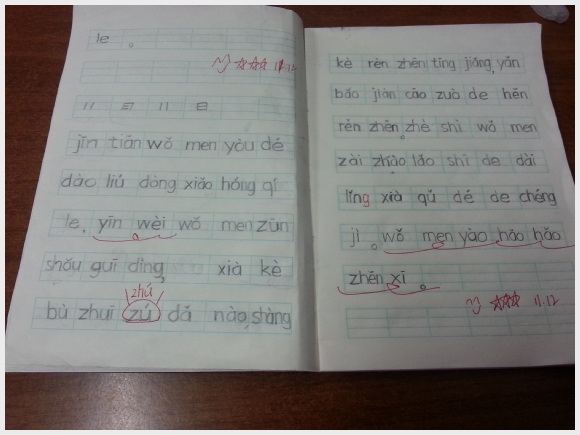 le 。
11.12
11 月 11 日
jīn tiān wǒ men yòu dé
dào liú dòng xiǎo hóng qí
le, yīn wèi wǒ men zūn
shǒu guī dìng, xià kè
zhú
bù zhuī zú dǎ nào, shàng
kè rèn zhēn tīng jiǎng, yǎn
bǎo jiàn cāo zuò de hěn
rèn zhēn。zhè shì wǒ men
zài zhào lǎo shī de dài
lǐng xià qǔ dé de chéng
jì 。wǒ men yào hǎo hǎo
zhēn xī 。
11.12